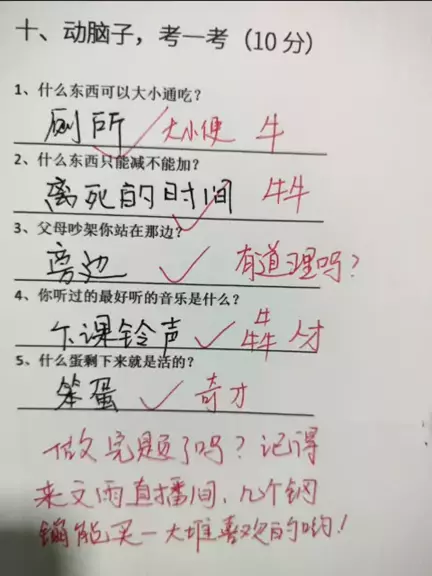 十、动脑子，考一考（10分）
1、什么东西可以大小通吃？
厕所 大小便 牛
2、什么东西只能减不能加？
离死的时间 牪
3、父母吵架你站在那边？
旁边 有道理吗？
4、你听过的最好听的音乐是什么？
下课铃声 犇 人才
5、什么蛋剩下来就是活的？
笨蛋 奇才
做完题了吗？记得
来文雨直播间，几个钢
镚能买一大堆喜欢的哟！